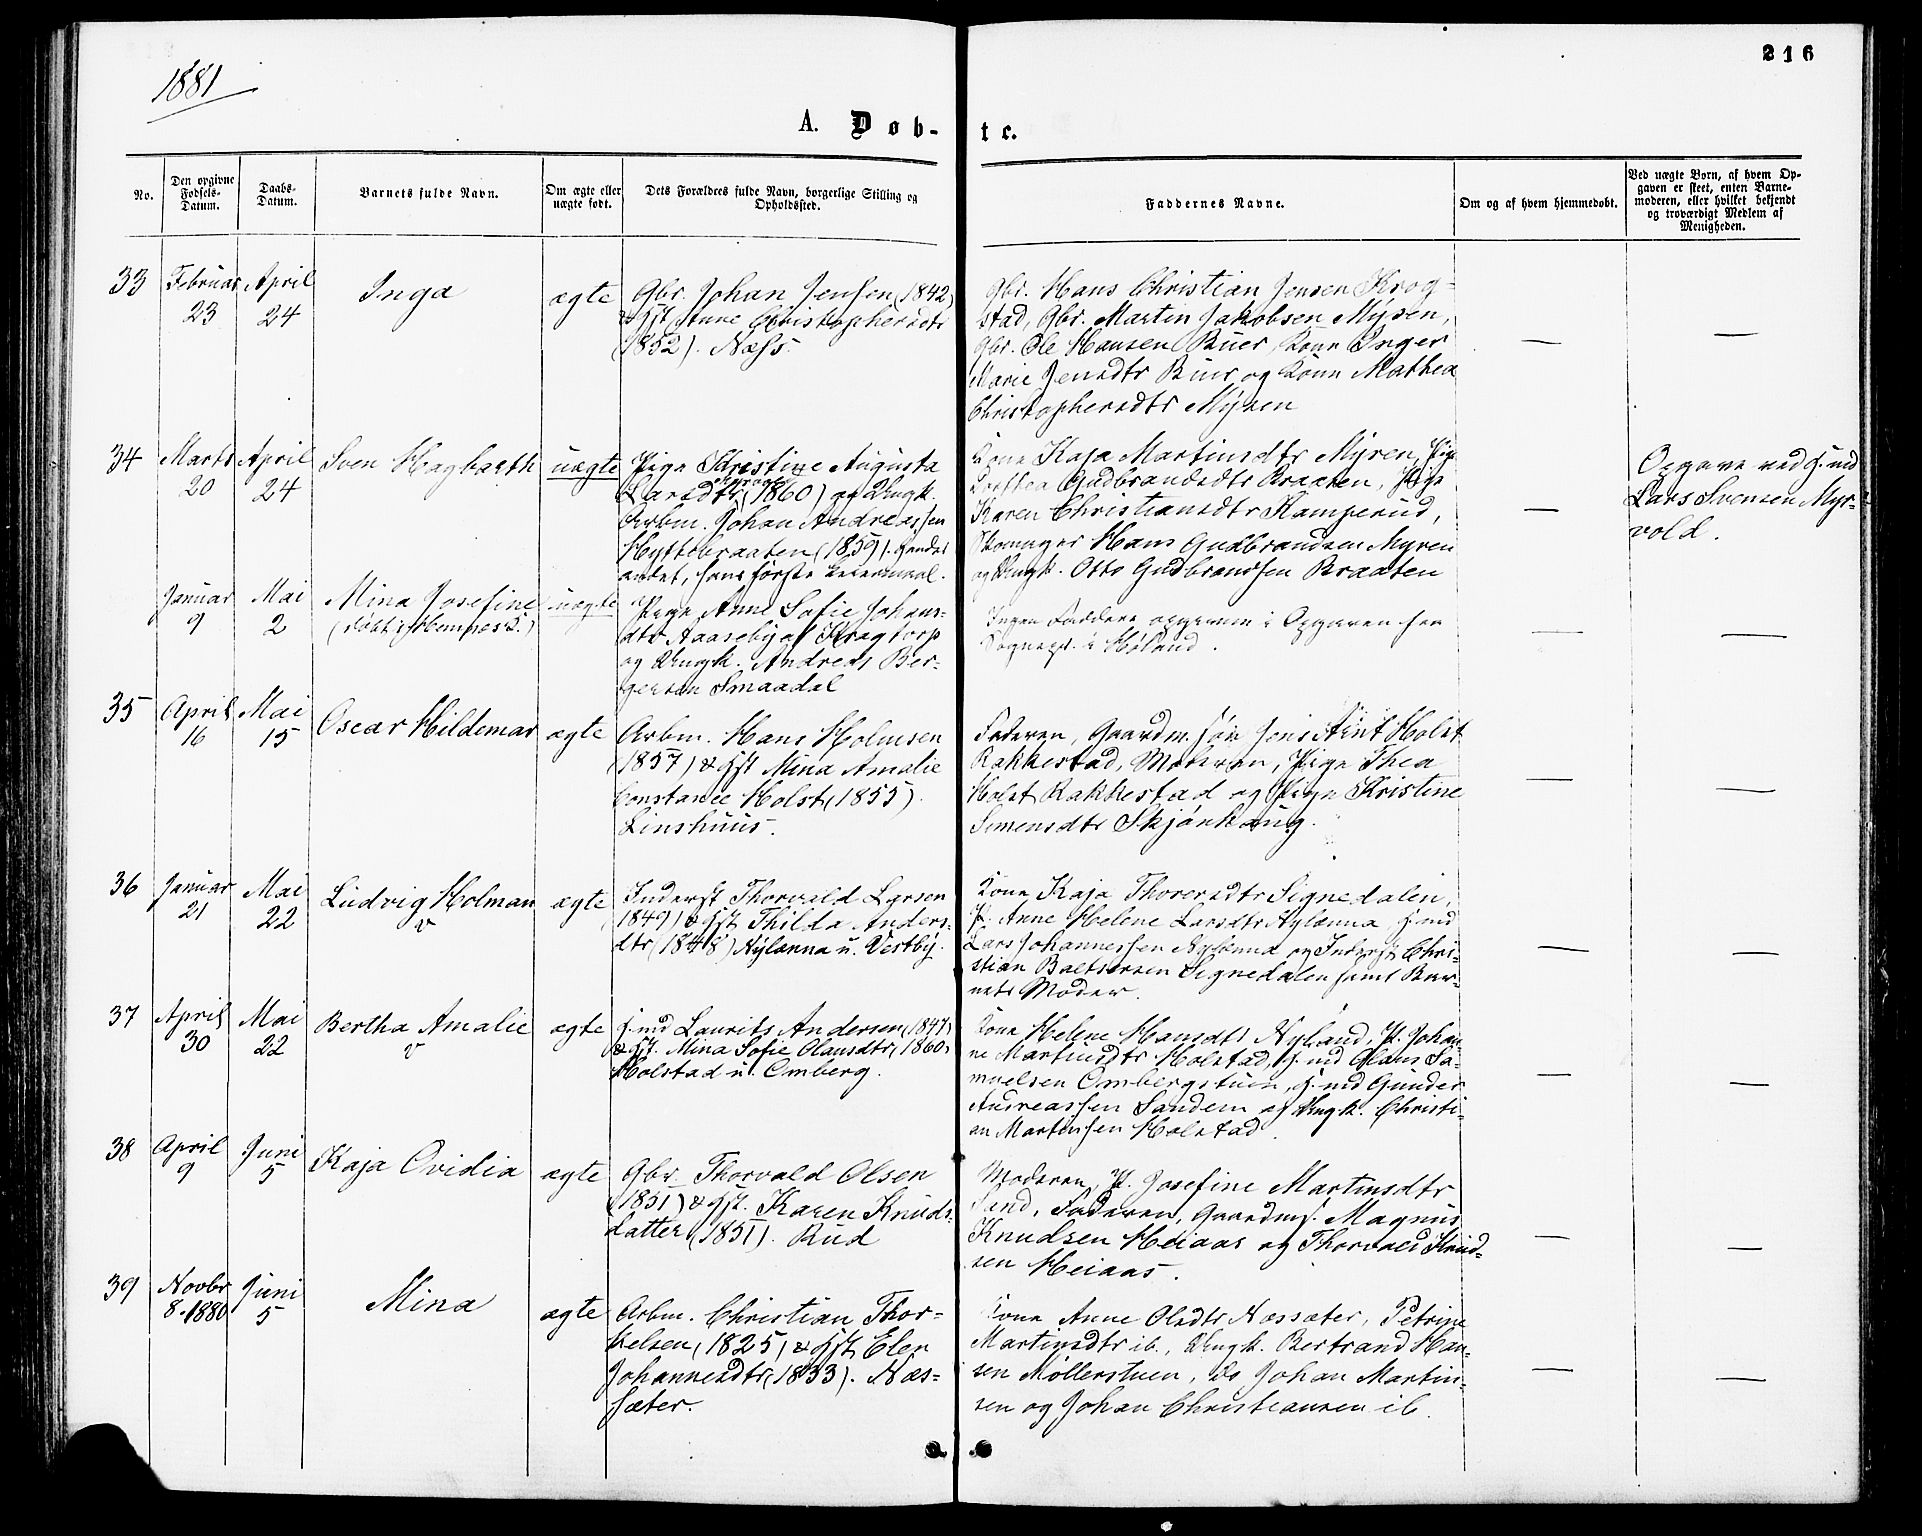 216
1881
A. Døb-
te.
No.
Den opgivne Fødsels-Datum.
Daabs-Datum.
Barnets fulde Navn.
Om ægte eller uægte født.
Dets Forældres fulde Navn, borgerlige Stilling og Opholdssted.
Faddernes Navne.
Om og af hvem hjemmedøbt.
Ved uægte Børn, af hvem Opgaven er skeet, enten Barnemoderen, eller hvilket bekjendt og troværdigt Medlem af Menigheden.
33
Februar 23
April 24
Inga
ægte
Gbr. Johan Jensen (1842)
& Hst Anne Christophersdtr
(1852). Næss.
Gbr. Hans Christian Jensen Krog-
stad, Gbr. Martin Jakobsen Mysen,
Gbr. Ole Hansen Buer, Kone Inger
Marie Jensdtr Buer og Kone Mathea
Christophersdtr Mysen
34
Marts 20
April 24
Sven Hagbarth
uægte
Pige Christine Augusta
Larsdtr (1860) og Ungk.
Arbm. Johan Andreassen
Hyttebraaten (1859). Hendes
andet, hans første Leiermaal.
Kone Kaja Martinsdtr Myren, Pige
Dorthea Gudbrandsdtr Braaten, Pige
Karen Christiansdtr Kamperud,
Skomager Hans Gudbrandsen Myren
og Ungk. Otto Gudbrandsen Braaten
Opgave ved H.md
Lars Svensen Myr-
vold.
Januar 9
Mai 2
Mina Josefine
(døbt i Hemnes S.)
uægte
Pige Anne Sofie Johans-
dtr Aaseby af Krogtorp
og Ungk. Andreas Ber-
gersen Smaadal
Ingen Faddere opgivne i Opgaven fra
Sognepr. i Høland.
35
April 16
Mai 15
Oscar Hildemar
ægte
Arbm. Hans Holmsen
(1857) & Hst Mina Amalie
Constance Holst (1855).
Linshuus.
Faderen, Gaardm.søn Jens Arnt Holst
Rakkestad, Moderen, Pige Thea
Holst Rakkestad og Pige Kristine
Simensdtr Skjønhaug.
36
Januar 21
Mai 22
Ludvig Holman
v
ægte
Inderst Thorvald Larsen
(1849) & Hst Thilda Anders-
dtr (1848) Nylænna u. Vestby.
Kone Kaja Thoresdtr Signedalen,
P. Anne Helene Larsdtr Nylænna H.md
Lars Johannessen Nylænna og Inderst Chri-
stian Baltsersen Signedalen samt Bar-
nets Moder.
37
April 30
Mai 22
Bertha Amalie
v
ægte
H.md Laurits Andersen (1847)
& Hst. Mina Sofie Olausdtr (1860)
Holstad u. Omberg.
Kone Helene Hansdtr Nyland, P. Johan-
ne Martinsdtr Holstad, H.md Olaus Sa-
muelsen Ombergstuen, H.md Gunder
Andreassen Sandem og Ungk. Christi-
an Martinsen Holstad.
38
April 9
Juni 5
Kaja Ovidia
ægte
Gbr. Thorvald Olsen
(1851) & Hst. Karen Knuds-
datter (1851). Rud
Moderen, P. Josefine Martinsdtr
Sand, Faderen, Gaardm.s. Magnus
Knudsen Heiaas og Thorvald Knud-
sen Heiaas.
39
Novbr 8. 1880
Juni 5
Mina
ægte
Arbm. Christian Thor-
kelsen (1825) & Hst Elen
Johannesdtr (1833). Næs-
sæter.
Kone Anne Olsdtr Næssæter, Petrine
Martinsdtr ib., Ungk. Bertrand Han-
sen Møllerstuen, Do Johan Martin-
sen og Johan Christiansen ib.